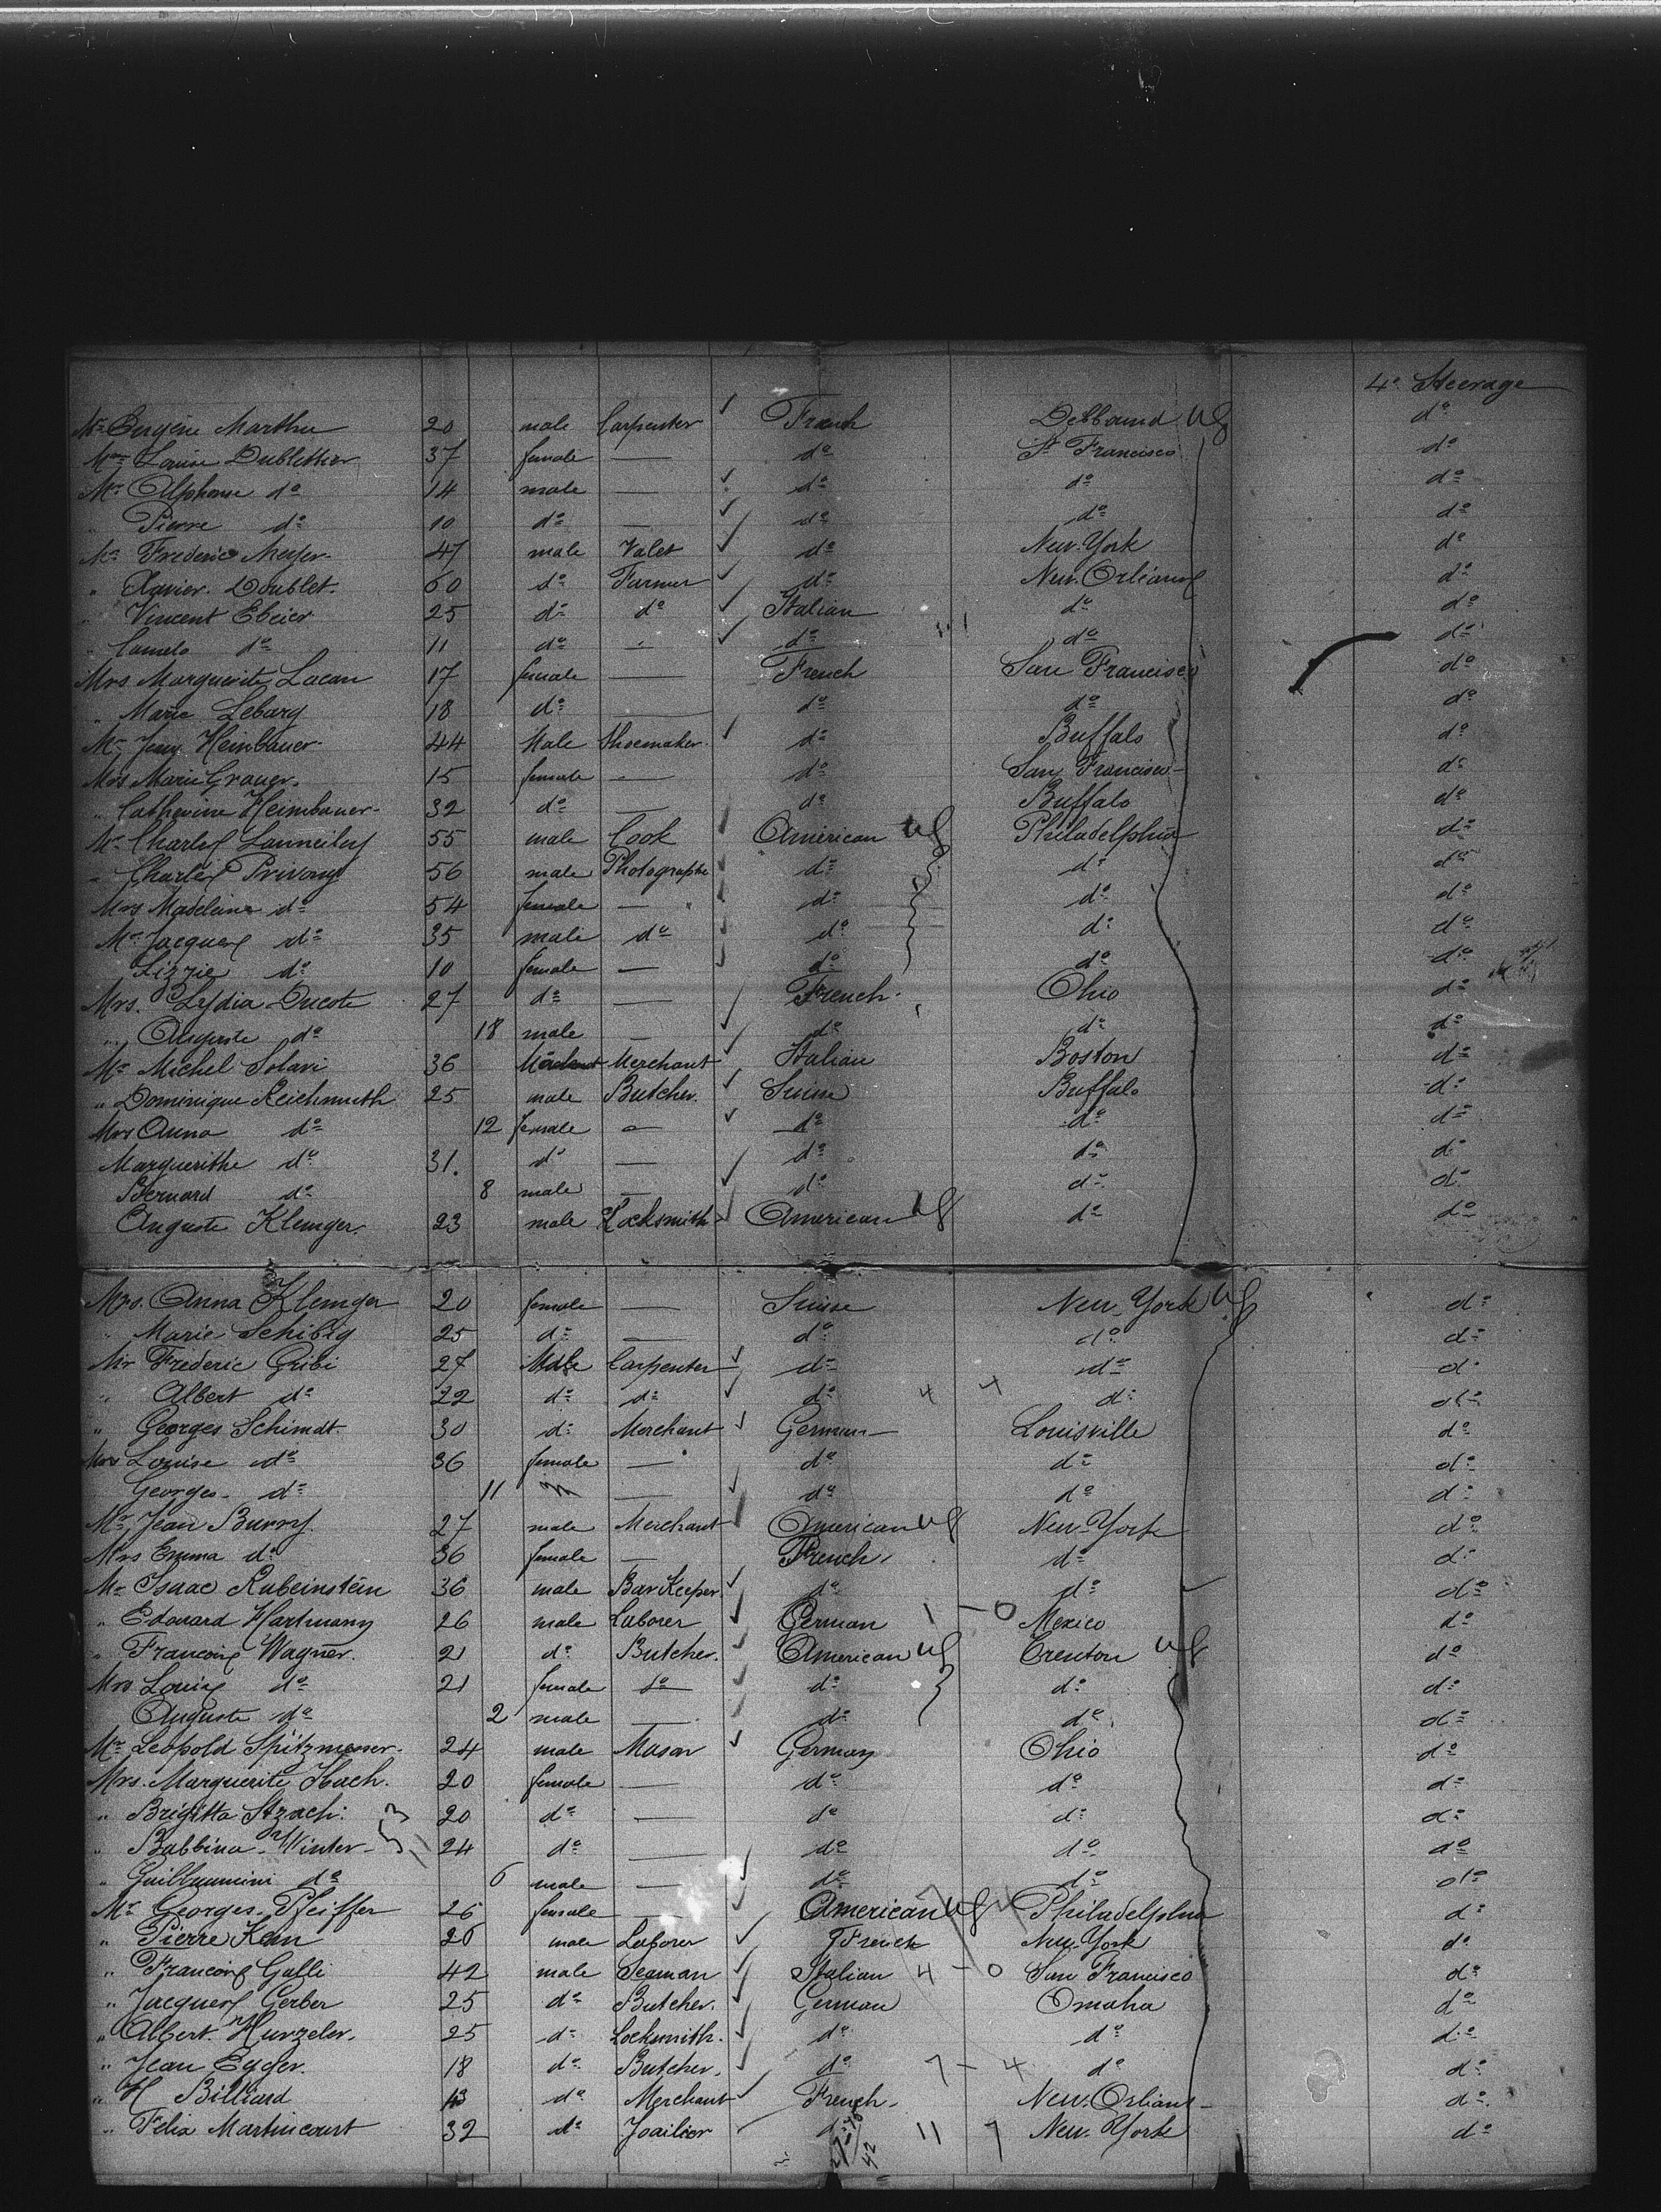 4º Steerage
Mr Eugène Marthu 20 male Carpenter French US dº
Mme Louise Dublettier 37 female — dº St Francisco dº
Mr Alphonse dº 14 male — dº dº dº
" Pierre dº 10 dº — dº dº dº
Mr Frederic Meyer 47 male Valet dº New-York dº
" Xavier Doublet 60 dº Farmer dº New-Orléans dº
" Vincent 25 dº dº Italian dº dº
" Camelo dº 11 dº - dº dº dº
Mrs Marguerite Lacau 17 female — French San Francisco dº
" Marie Lebarg 18 dº — dº dº dº
Mr Heimbauer 44 Male Shoemaker dº Buffalo dº
Mrs Marie Grauer 15 female — dº San Francisco dº
" Catherine Heimbauer 32 dº — dº Buffalo dº
Mr Charles 55 male Cook American US Philadelphia dº
" Charles Privony 56 male Photographe dº dº dº
Mrs Madelaine dº 54 female — dº dº dº
Mr Jacques dº 35 male dº dº dº dº
Lizzie dº 10 female — dº dº dº
Mrs. Lydia Ducote 27 dº — French Ohio dº
" Auguste dº 18 male — dº dº dº
Mr Michel Solari 36 Merchant Italian Boston dº
" Dominique Reichmuth 25 male Butcher. Suisse Buffalo dº
Mrs Anna dº 12 female — dº dº dº
Marguerithe dº 31. dº — dº dº dº
Bernard dº 8 male — dº dº dº
Auguste Klemger 23 male Locksmith American US dº dº
Mrs. Anna Klemger 20 female — Suisse New-York US dº
" Marie Schibig 25 dº — dº dº dº
Mr Frederic Gribi 27 Male Carpenter dº dº dº
" Albert dº 22 dº dº dº 4 4 dº dº
" Georges Schimdt 30 dº Merchant German Louisville dº
Mrs Louise dº 36 female — dº dº dº
Georges dº 11 m — dº dº dº
Mr Jean Burry 27 male Merchant American US New-York dº
Mrs Emma dº 36 female — French dº dº
Mr Isaac Rubeinstein 36 male Bar Keeper dº dº dº
" Edouard Hartmann 26 male Laborer German 1 - 0 Mexico dº
" Francois Wagner 21 dº Butcher. American US Trenton US dº
Mrs Louis dº 21 female dº dº dº dº
Auguste dº 2 male — dº dº dº
Mr Leopold Spitzmesser 24 male Mason German Ohio dº
Mrs. Marguerite Hach. 20 female — dº dº dº
" Brigitta 20 dº — dº dº dº
" Babbina Winter 24 dº — dº dº dº
" dº 6 male — dº dº dº
Mr Georges Pfeiffer 26 female — American US Philadelphia dº
" Pierre Kean 26 male Laborer French New-York dº
" Francois Galli 42 male Seaman Italian 4 - 0 San Francisco dº
" Jacques Gerber 25 dº Butcher. German Omaha dº
" Albert Hurzeler. 25 dº Locksmith. dº dº dº
" Jean Egger. 18 dº Butcher. dº 7 - 4 dº dº
" H Billiard dº Merchant French New-Orleans dº
" Felix Martincourt 32 dº Joailier dº 11 7 New-York dº